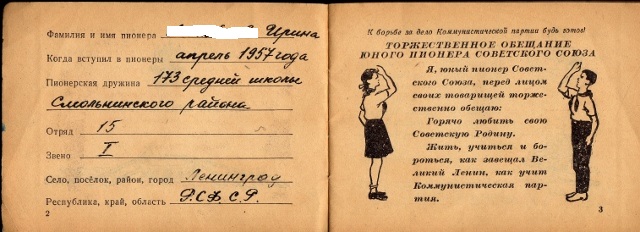 Фамилия и имя пионера Ирина
Когда вступил в пионеры апрель 1957 года
Пионерская дружина 173 средней школы
Смольнинского района
Отряд 15
Звено I
Село, посёлок, район, город Ленинград
Республика, край, область Р.С.Ф.С.Р.
2
К борьбе за дело Коммунистической партии будь готов!
ТОРЖЕСТВЕННОЕ ОБЕЩАНИЕ
ЮНОГО ПИОНЕРА СОВЕТСКОГО СОЮЗА
Я, юный пионер Совет-
ского Союза, перед лицом
своих товарищей торже-
ственно обещаю:
Горячо любить свою
Советскую Родину.
Жить, учиться и бо-
роться, как завещал Ве-
ликий Ленин, как учит
Коммунистическая пар-
тия.
3